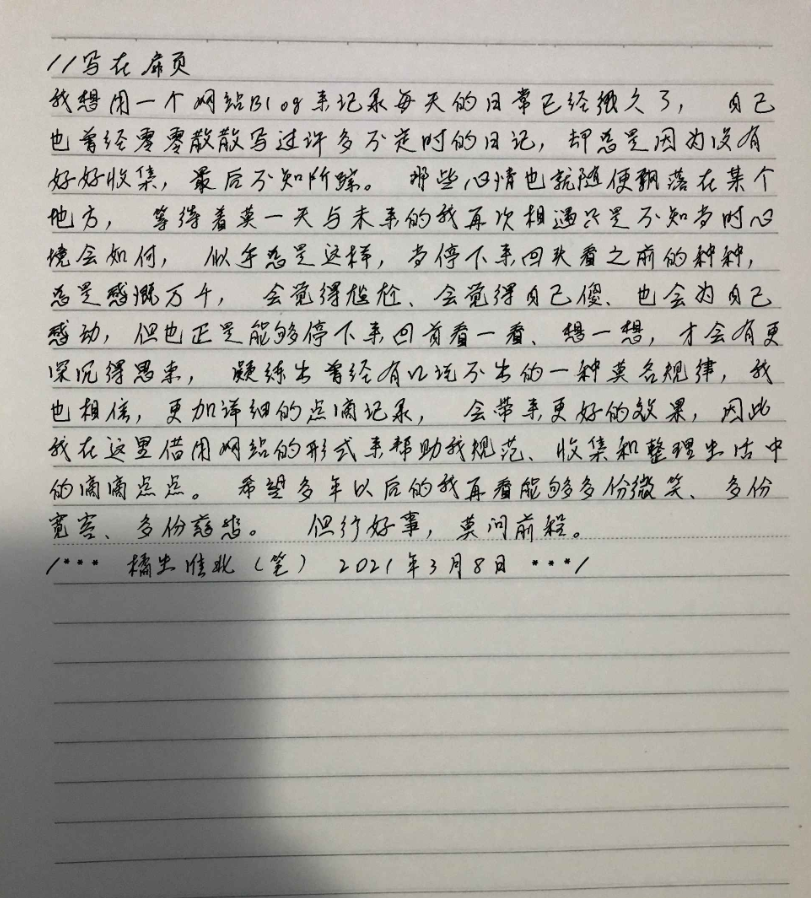 //写在扉页
我想用一个网站Blog来记录每天的日常已经很久了， 自己
也曾经零零散散写过许多不定时的日记，却总是因为没有
好好收集，最后不知所踪。 那些心情也就随便飘落在某个
地方， 等待着莫一天与未来的我再次相遇只是不知当时心
境会如何， 似乎总是这样，当停下来回头看之前的种种，
总是感慨万千， 会觉得尴尬、会觉得自己傻、也会为自己
感动，但也正是能够停下来回首看一看、想一想，才会有更
深沉得思来， 凝练出曾经有口说不出的一种莫名规律，我
也相信，更加详细的点滴记录， 会带来更好的效果，因此
我在这里借用网站的形式来帮助我规范、收集和整理生活中
的滴滴点点。 希望多年以后的我再看能够多份微笑、多份
宽容、多份慈悲。 但行好事，莫问前程。
/*** 橘生淮北（笔） 2021年3月8日 ***/